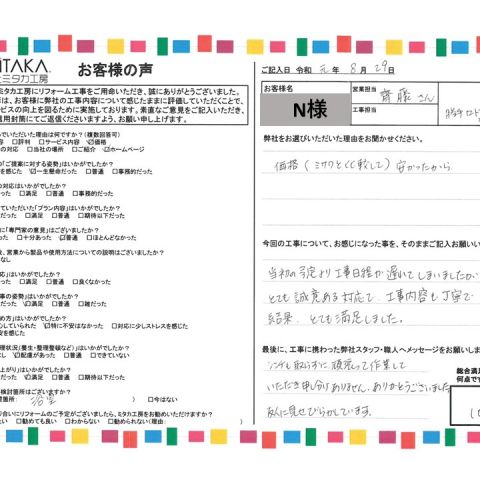 ITAKA
ミタカ工房
お客様の声
ミタカ工房にリフォーム工事をご用命いただき、誠にありがとうございました。
は、お客様に弊社の工事内容について感じたままに評価していただくことで、
ービスの向上を図るために実施しております。率直なご意見をご記入いただき、
信用封筒にてご返送くださいますよう、お願い申し上げます。
いでいただいた理由は何ですか？（複数回答可）
容 □評判 □サービス内容 ☑価格
の他 □当社の場所 □ご紹介 □ホームページ
の「ご提案に対する姿勢」はいかがでしたか？
を感じた ☑一生懸命だった □普通 □事務的だった
の対応はいかがでしたか？
だった □満足 □普通 □事務的だった
ていただいた「プラン内容」はいかがでしたか？
だった □満足 □普通 □期待以下だった
に「専門家の意見」はございましたか？
った □十分あった ☑普通 □ほとんどなかった
後、営業から製品や使用方法についての説明はございましたか？
なし
応」はいかがでしたか？
だった □満足 □普通 □良くなかった
事の姿勢」はいかがでしたか？
だった □満足 □普通 □雑だった
め方」はいかがでしたか？
慮していられた ☑特に不安はなかった □対応に少しストレスを感じた
安を感じた
理状況（養生・整理整頓など）はいかがでしたか？
なし ☑配慮があった □できていない
上がり」はいかがでしたか？
だった □満足 □普通 □期待以下だった
検討箇所はございますか？
箇所： 浴室 ） □今はない
合いにリフォームのご予定がございましたら、ミタカ工房をお勧めいただけますか？
たい □勧めても良い □わからない □勧められない（理由： ）
ご記入日 令和 元 年 8 月 29 日
お客様名
N様
営業担当
齊藤さん
工事担当
弊社をお選びいただいた理由をお聞かせください。
価格（ミサワとくらべ較して）安かったから
今回の工事について、お感じになった事を、そのままご記入お願いい
当初の予定より工事日程が遅れてしまいましたが
とても誠意ある対応で、工事内容も丁寧で
結果、とても満足しました。
最後に、工事に携わった弊社スタッフ・職人へメッセージをお願いしま
総合満足
何点です
頑張って作業して
いただき申し分ありません。ありがとうございました
友人に見せびらかしています。